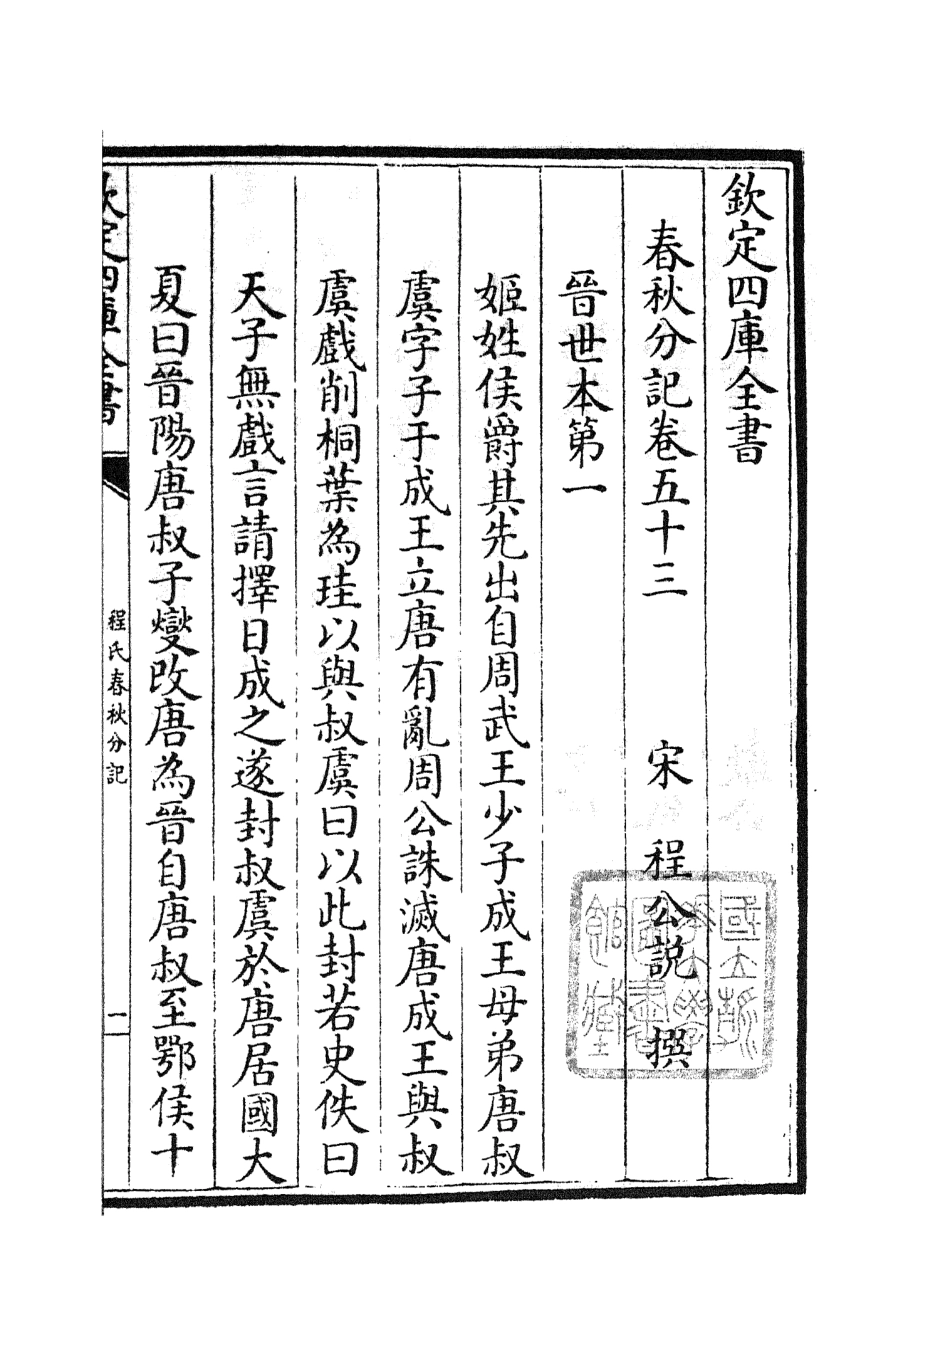 欽定四庫全書
春秋分記卷五十三　宋　程公說　撰
晉世本第一
姬姓侯爵其先出自周武王少子成王母弟唐叔
虞字子于成王立唐有亂周公誅滅唐成王與叔
虞戲削桐葉為珪以與叔虞曰以此封若史佚曰
天子無戲言請擇日成之遂封叔虞於唐居國大
夏曰晉陽唐叔子燮改唐為晉自唐叔至鄂侯十
欽定四庫全書
程氏春秋分記
一